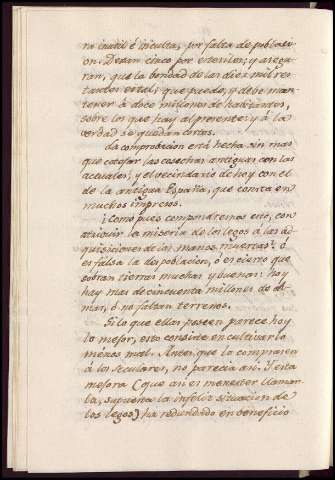 no inutil é inculta, por falta de poblaci-
on. Dexan cinco por esteriles; y asegu-
ran, que la bondad de los diez mil res-
tantes es tal, que puede, y debe man-
tener à doce millones de habitantes,
sobre los que hay al presente: y à la
verdad se quedan cortos.
La comprobacion está hecha sin mas
que cotejar las cosechas antiguas con las
actuales; y el vecindario de hoy con el
de la antigua España, que consta en
muchos impresos.
¿Como pues compondremos esto, con
atribuir la miseria de los legos à las ad-
quisiciones de las manos muertas? ó
es falsa la despoblacion, ó es cierto que
sobran tierras muchas y buenas: hoy
hay mas de cincuenta millones de al-
mas, ó no faltan terrenos.
Si lo que ellas poseen parece hoy
lo mejor, esto consiste en cultivarlo
ménos mal. Antes que la comprasen
à los seculares, no parecia asi. Y esta
mejora (que asi es menester llamar-
la, supuesta la infeliz situacion de
los legos) ha redundado en beneficio